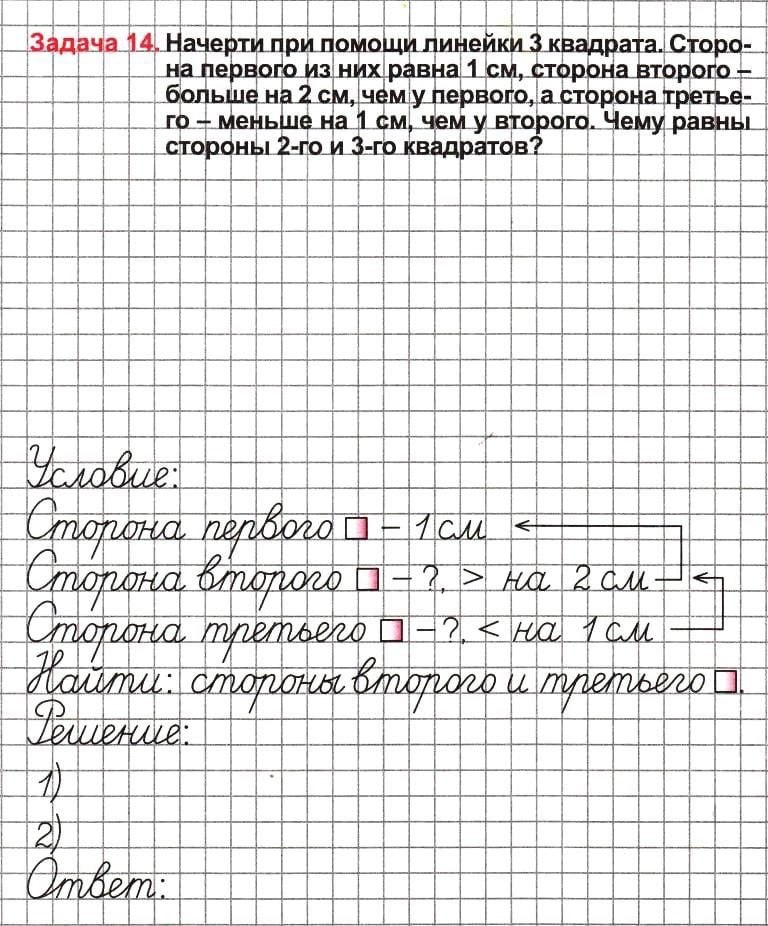 Задача 14. Начерти при помощи линейки 3 квадрата. Сторо-
на первого из них равна 1 см, сторона второго –
больше на 2 см, чем у первого, а сторона третье-
го – меньше на 1 см, чем у второго. Чему равны
стороны 2-го и 3-го квадратов?
Условие:
Сторона первого □ – 1 см
Сторона второго □ – ?, > на 2 см
Сторона третьего □ – ?, < на 1 см
Найти: стороны второго и третьего □.
Решение:
1)
2)
Ответ: